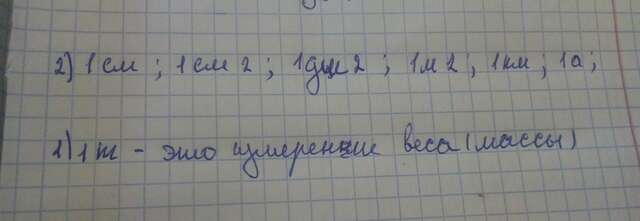 2) 1 см ; 1 см 2 ; 1дм 2 ; 1м 2 ; 1км ; 1а ;
1) 1 т - это измерение веса (массы)